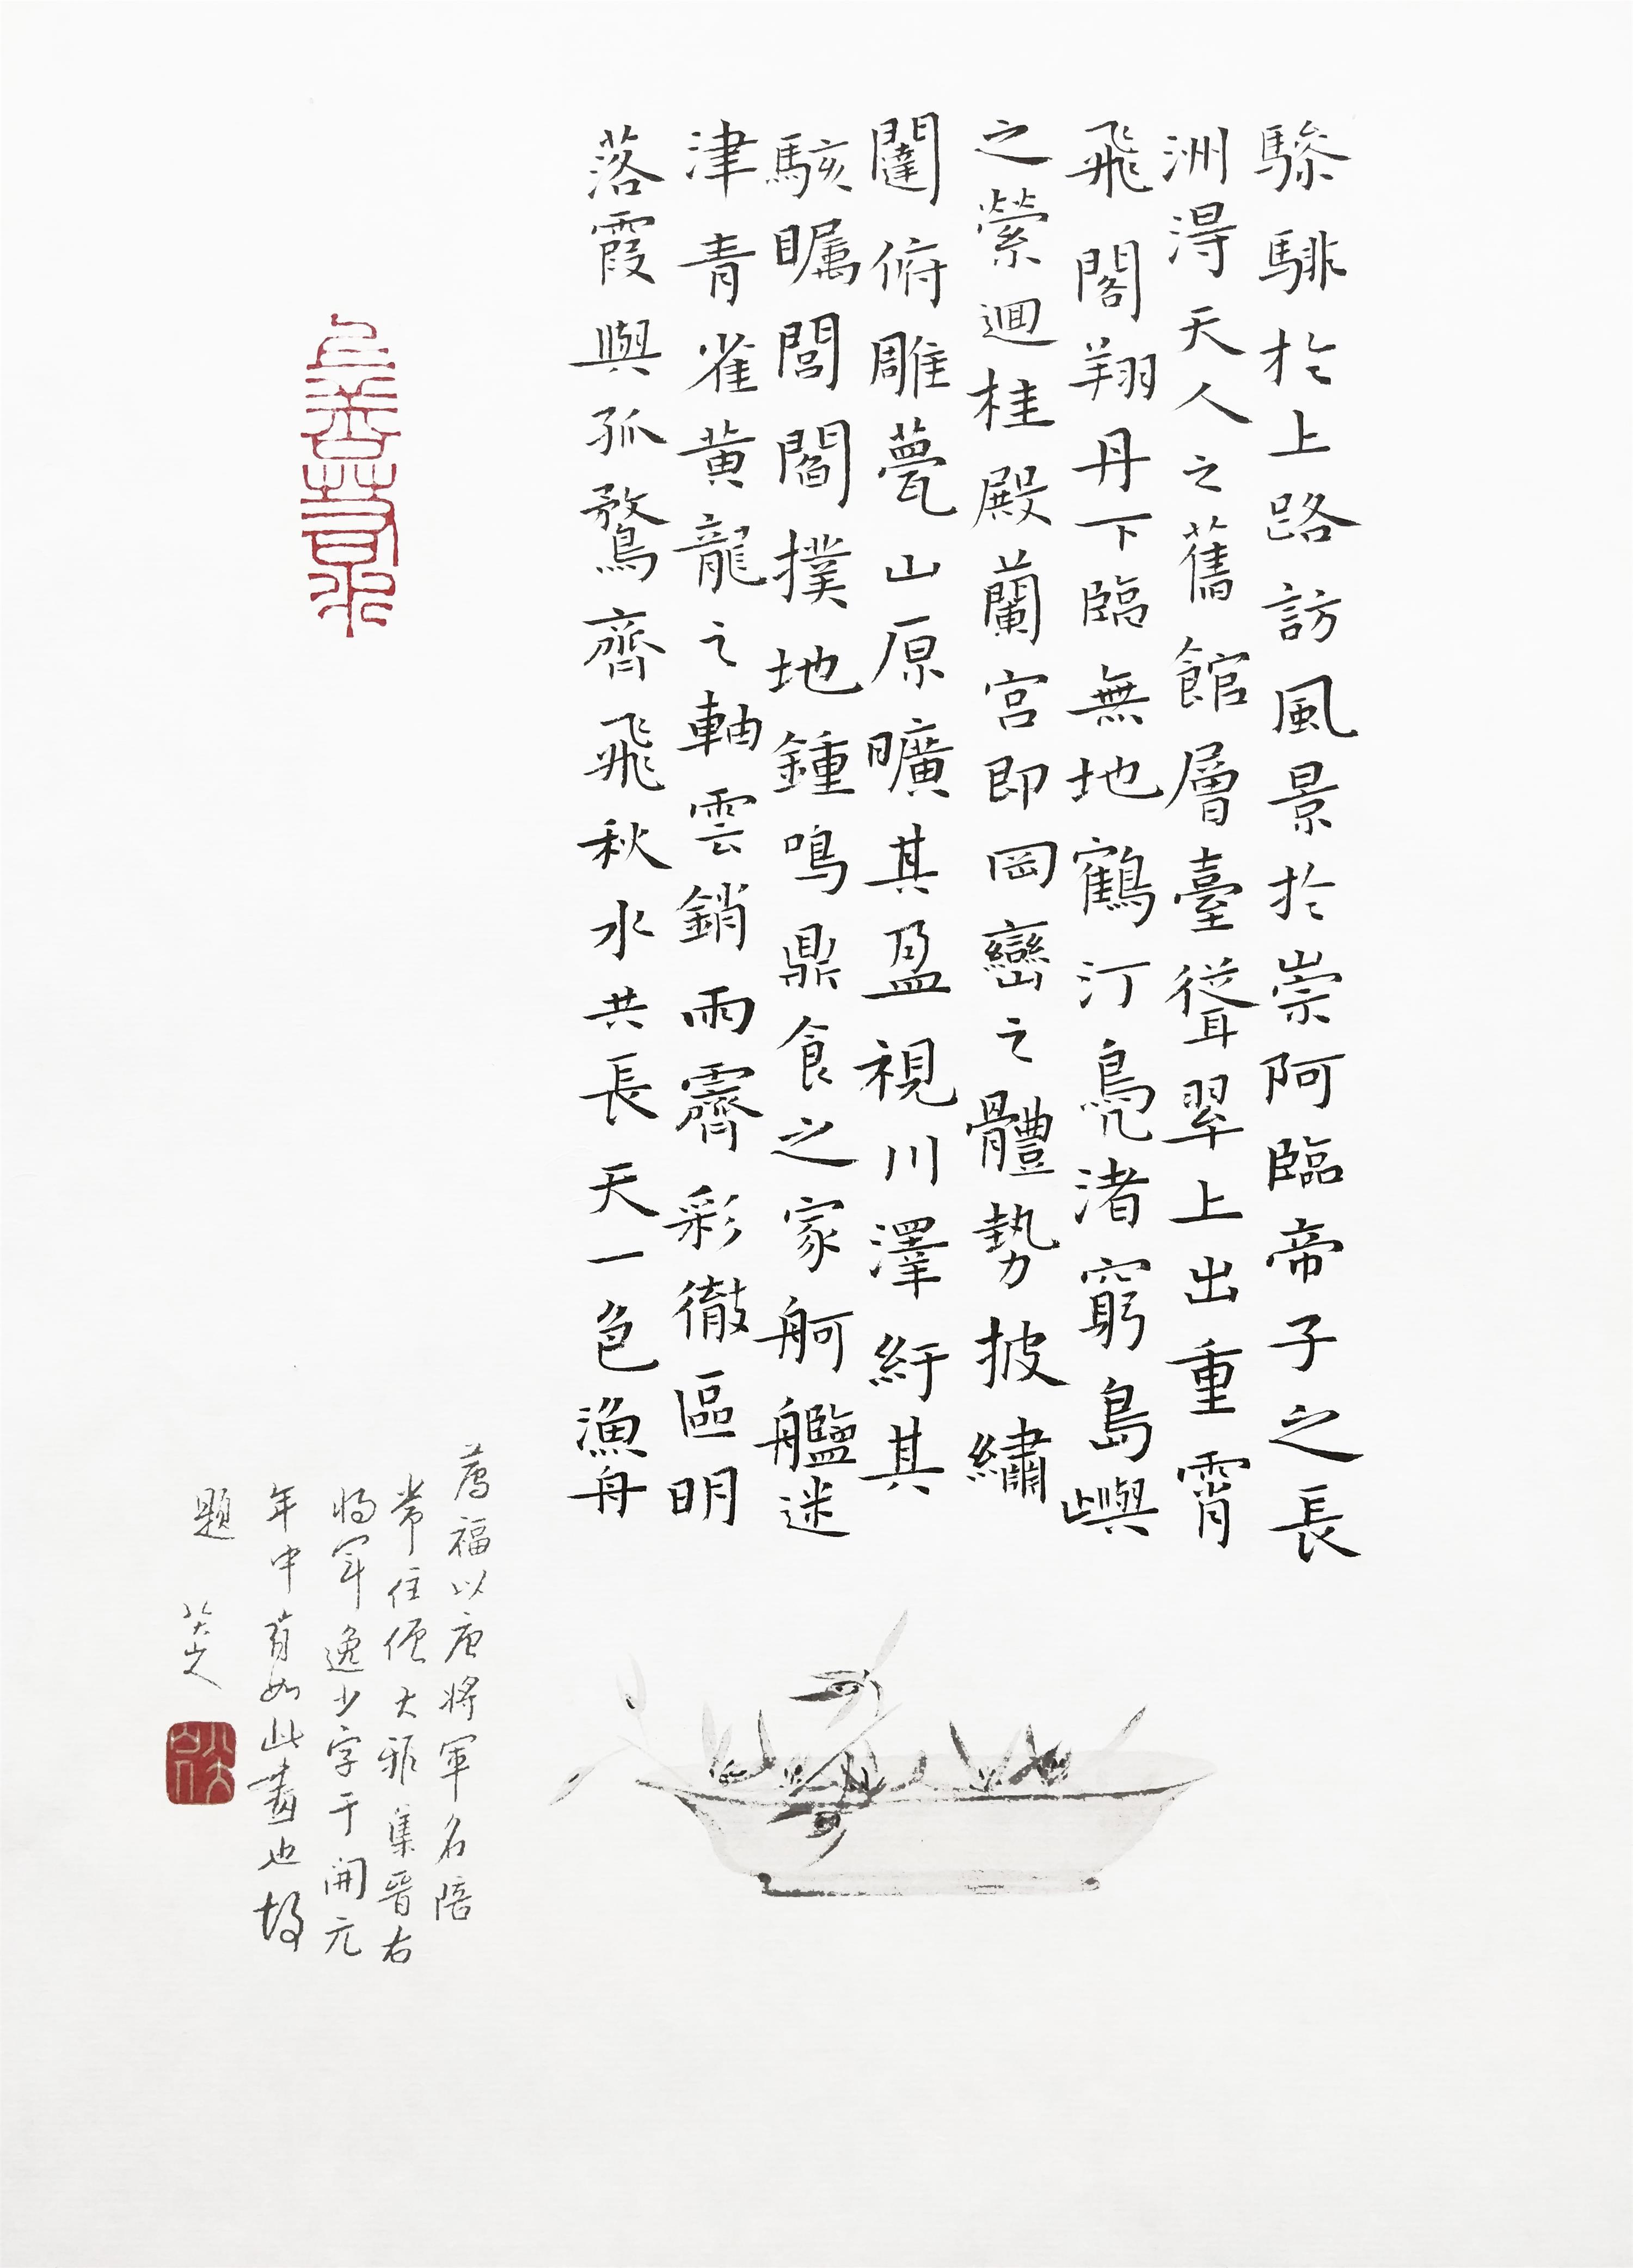 驂騑於上路訪風景於崇阿臨帝子之長
洲得天人之舊館層臺聳翠上出重霄
飛閣翔丹下臨無地鶴汀鳧渚窮島嶼
之縈迴桂殿蘭宮即岡巒之體勢披繡
闥俯雕甍山原曠其盈視川澤紆其
駭矚閭閻撲地鍾鳴鼎食之家舸艦迷
津青雀黃龍之軸雲銷雨霽彩徹區明
落霞與孤鶩齊飛秋水共長天一色漁舟
上善若水
薦福以唐將軍名陪
常住僧大雅集晉右
将軍逸少字于開元
年中有如此畫也故
題 八大山人